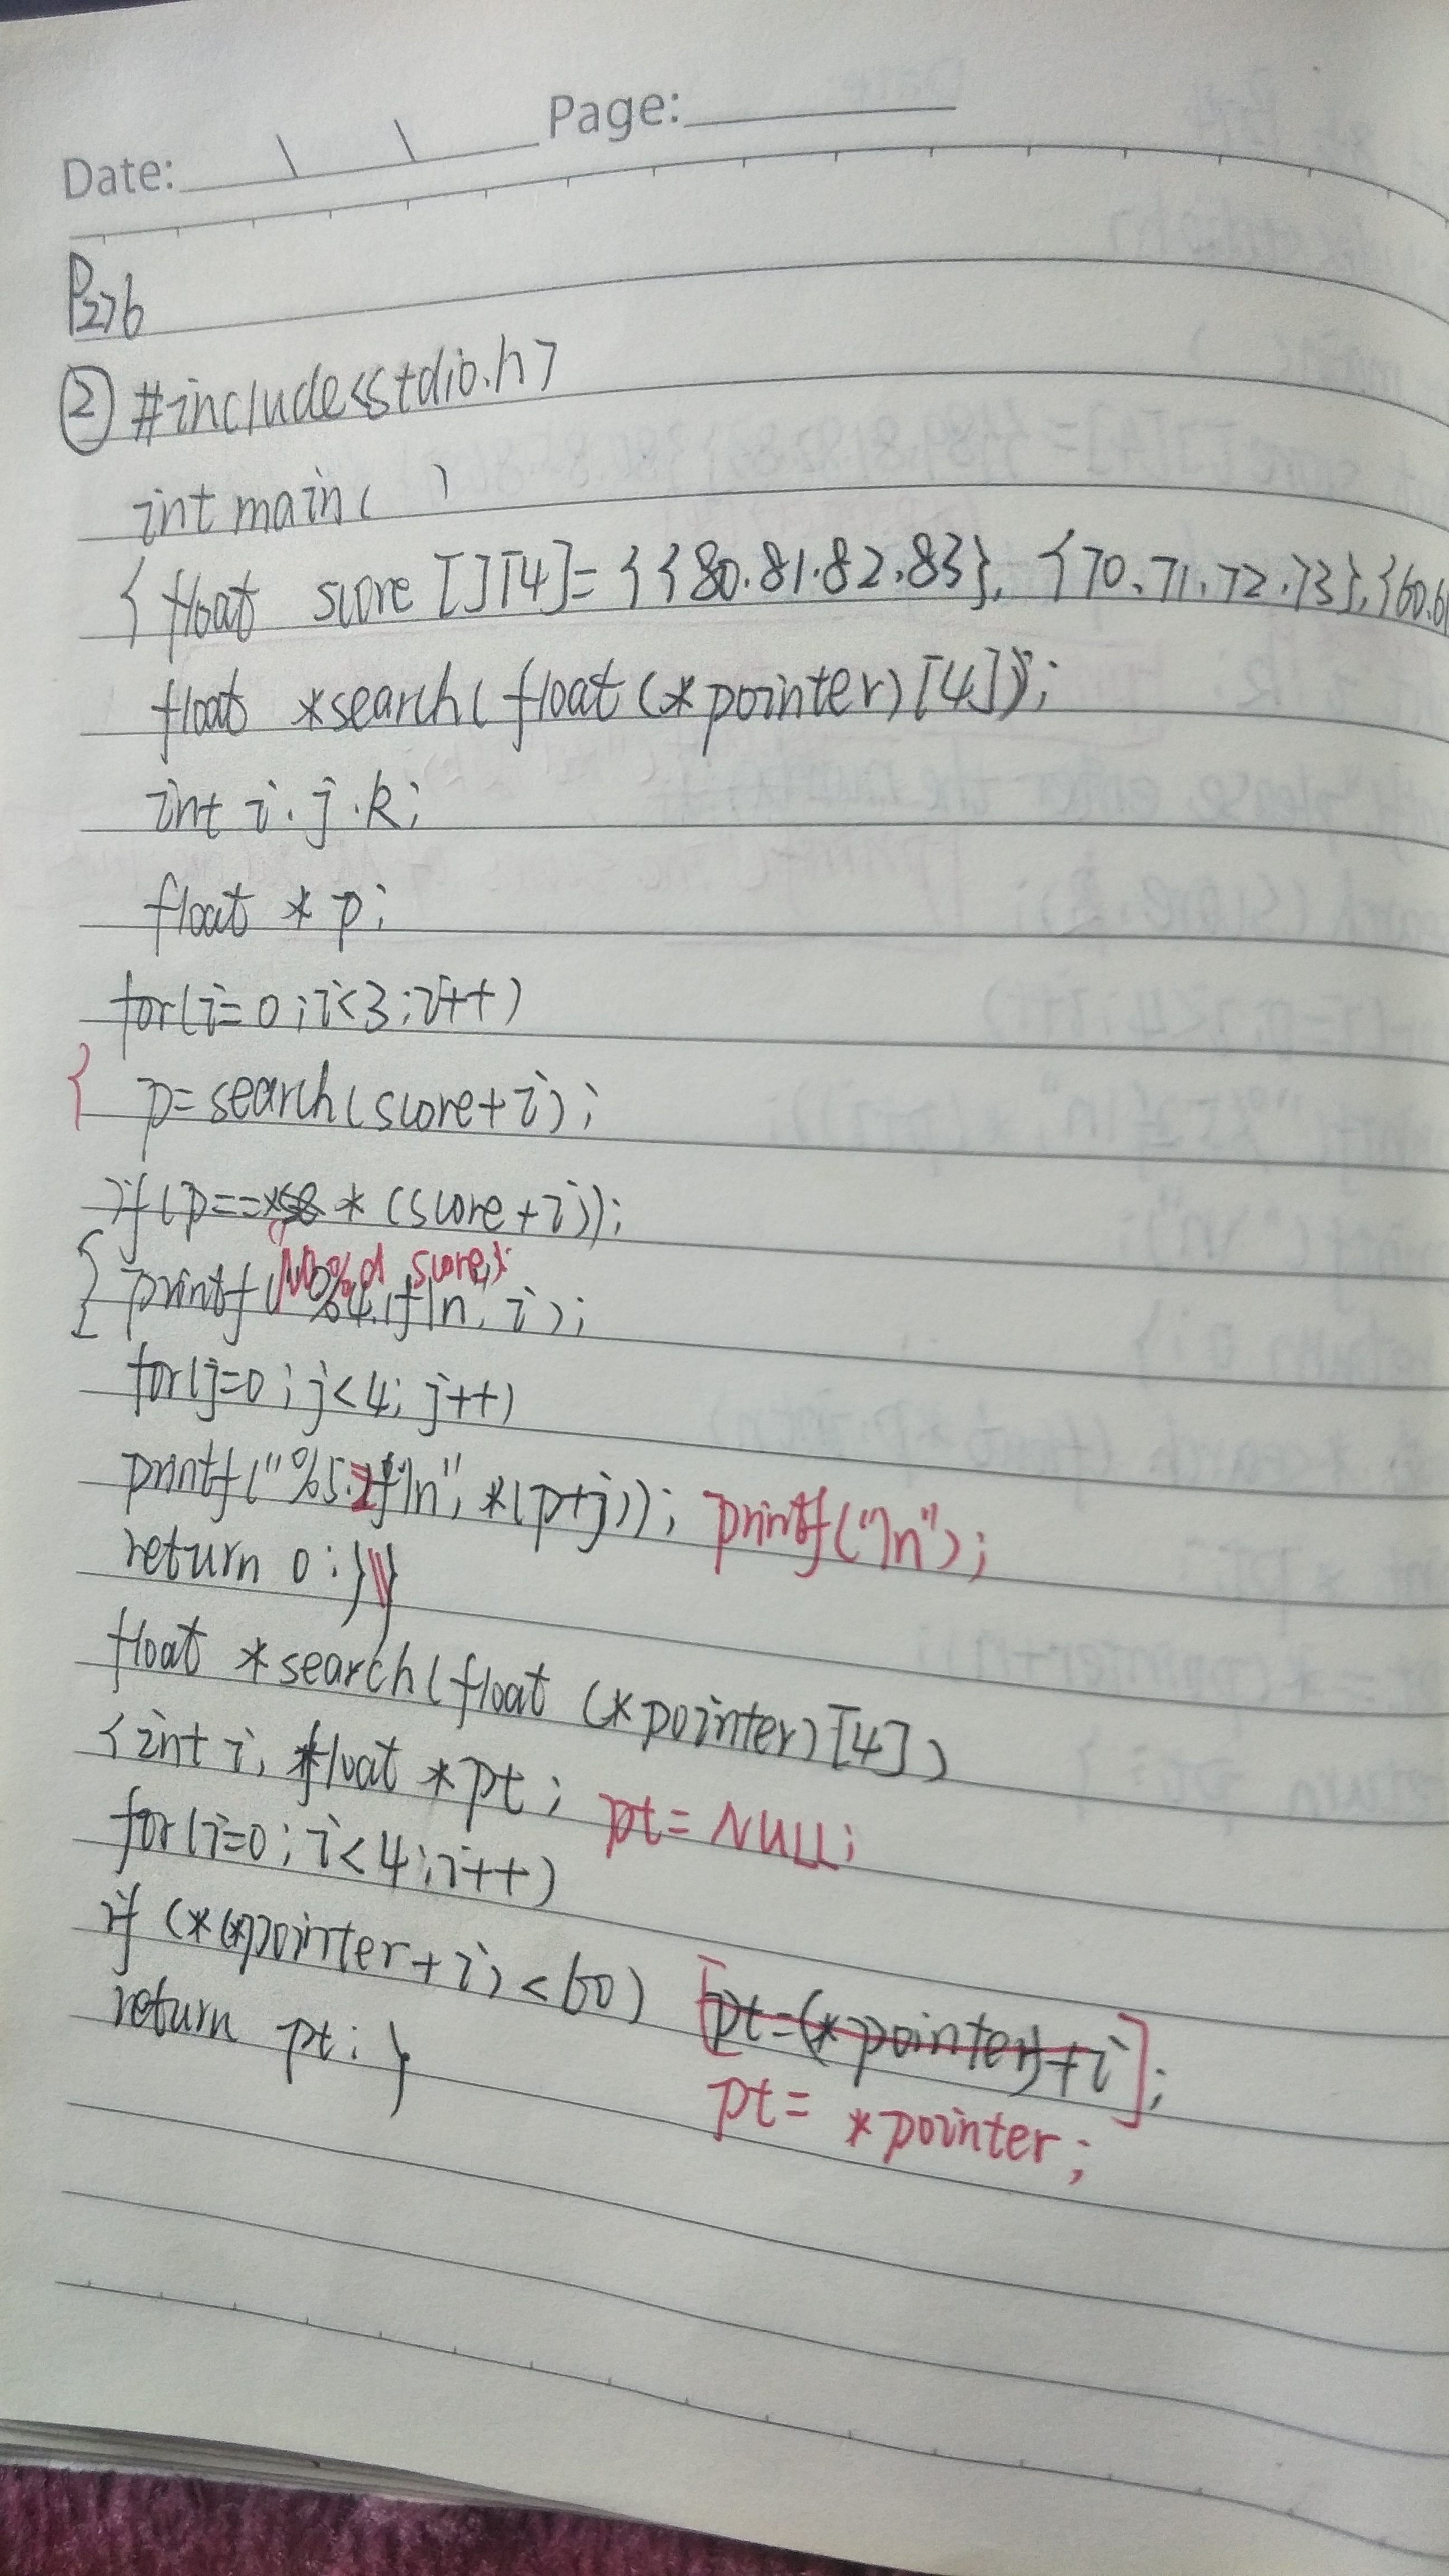 Date: Page:
P276
② #include<stdio.h>
int main( )
{ float score[][4]={{80.81.82.83}, {70.71.72.73},{60.6
float *search(float(*pointer)[4]);
int i.j.k;
float *p;
for(i=0;i<3;i++)
{ p=search(score+i);
if(p== *(score+i));
No%d score:
{ printf( %4.1f\n, i);
for(j=0;j<4;j++)
printf("%5.2f\n", *(p+j)); printf("\n");
return 0;}}
float *search(float (*pointer)[4])
{int i, float *pt; pt=NULL;
for(i=0;i<4;i++)
if (*(*pointer+i)<60) [pt=(*pointer)+i];
return pt;} pt= *pointer;